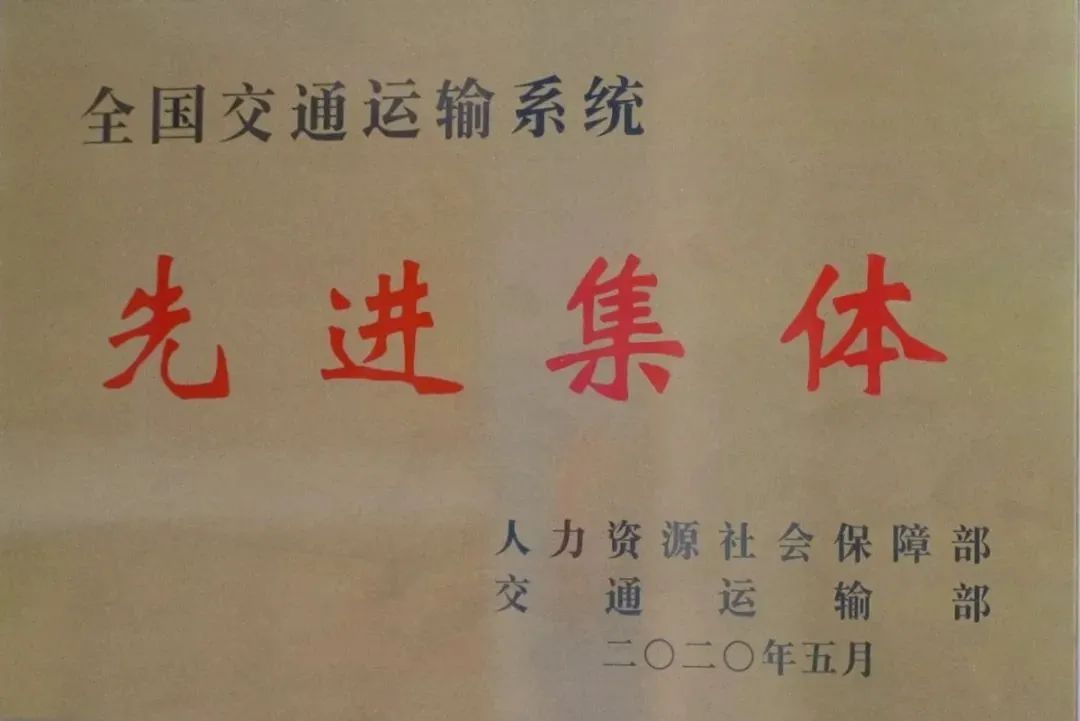 全国交通运输系统
先进集体
人力资源社会保障部
交通运输部
二〇二〇年五月